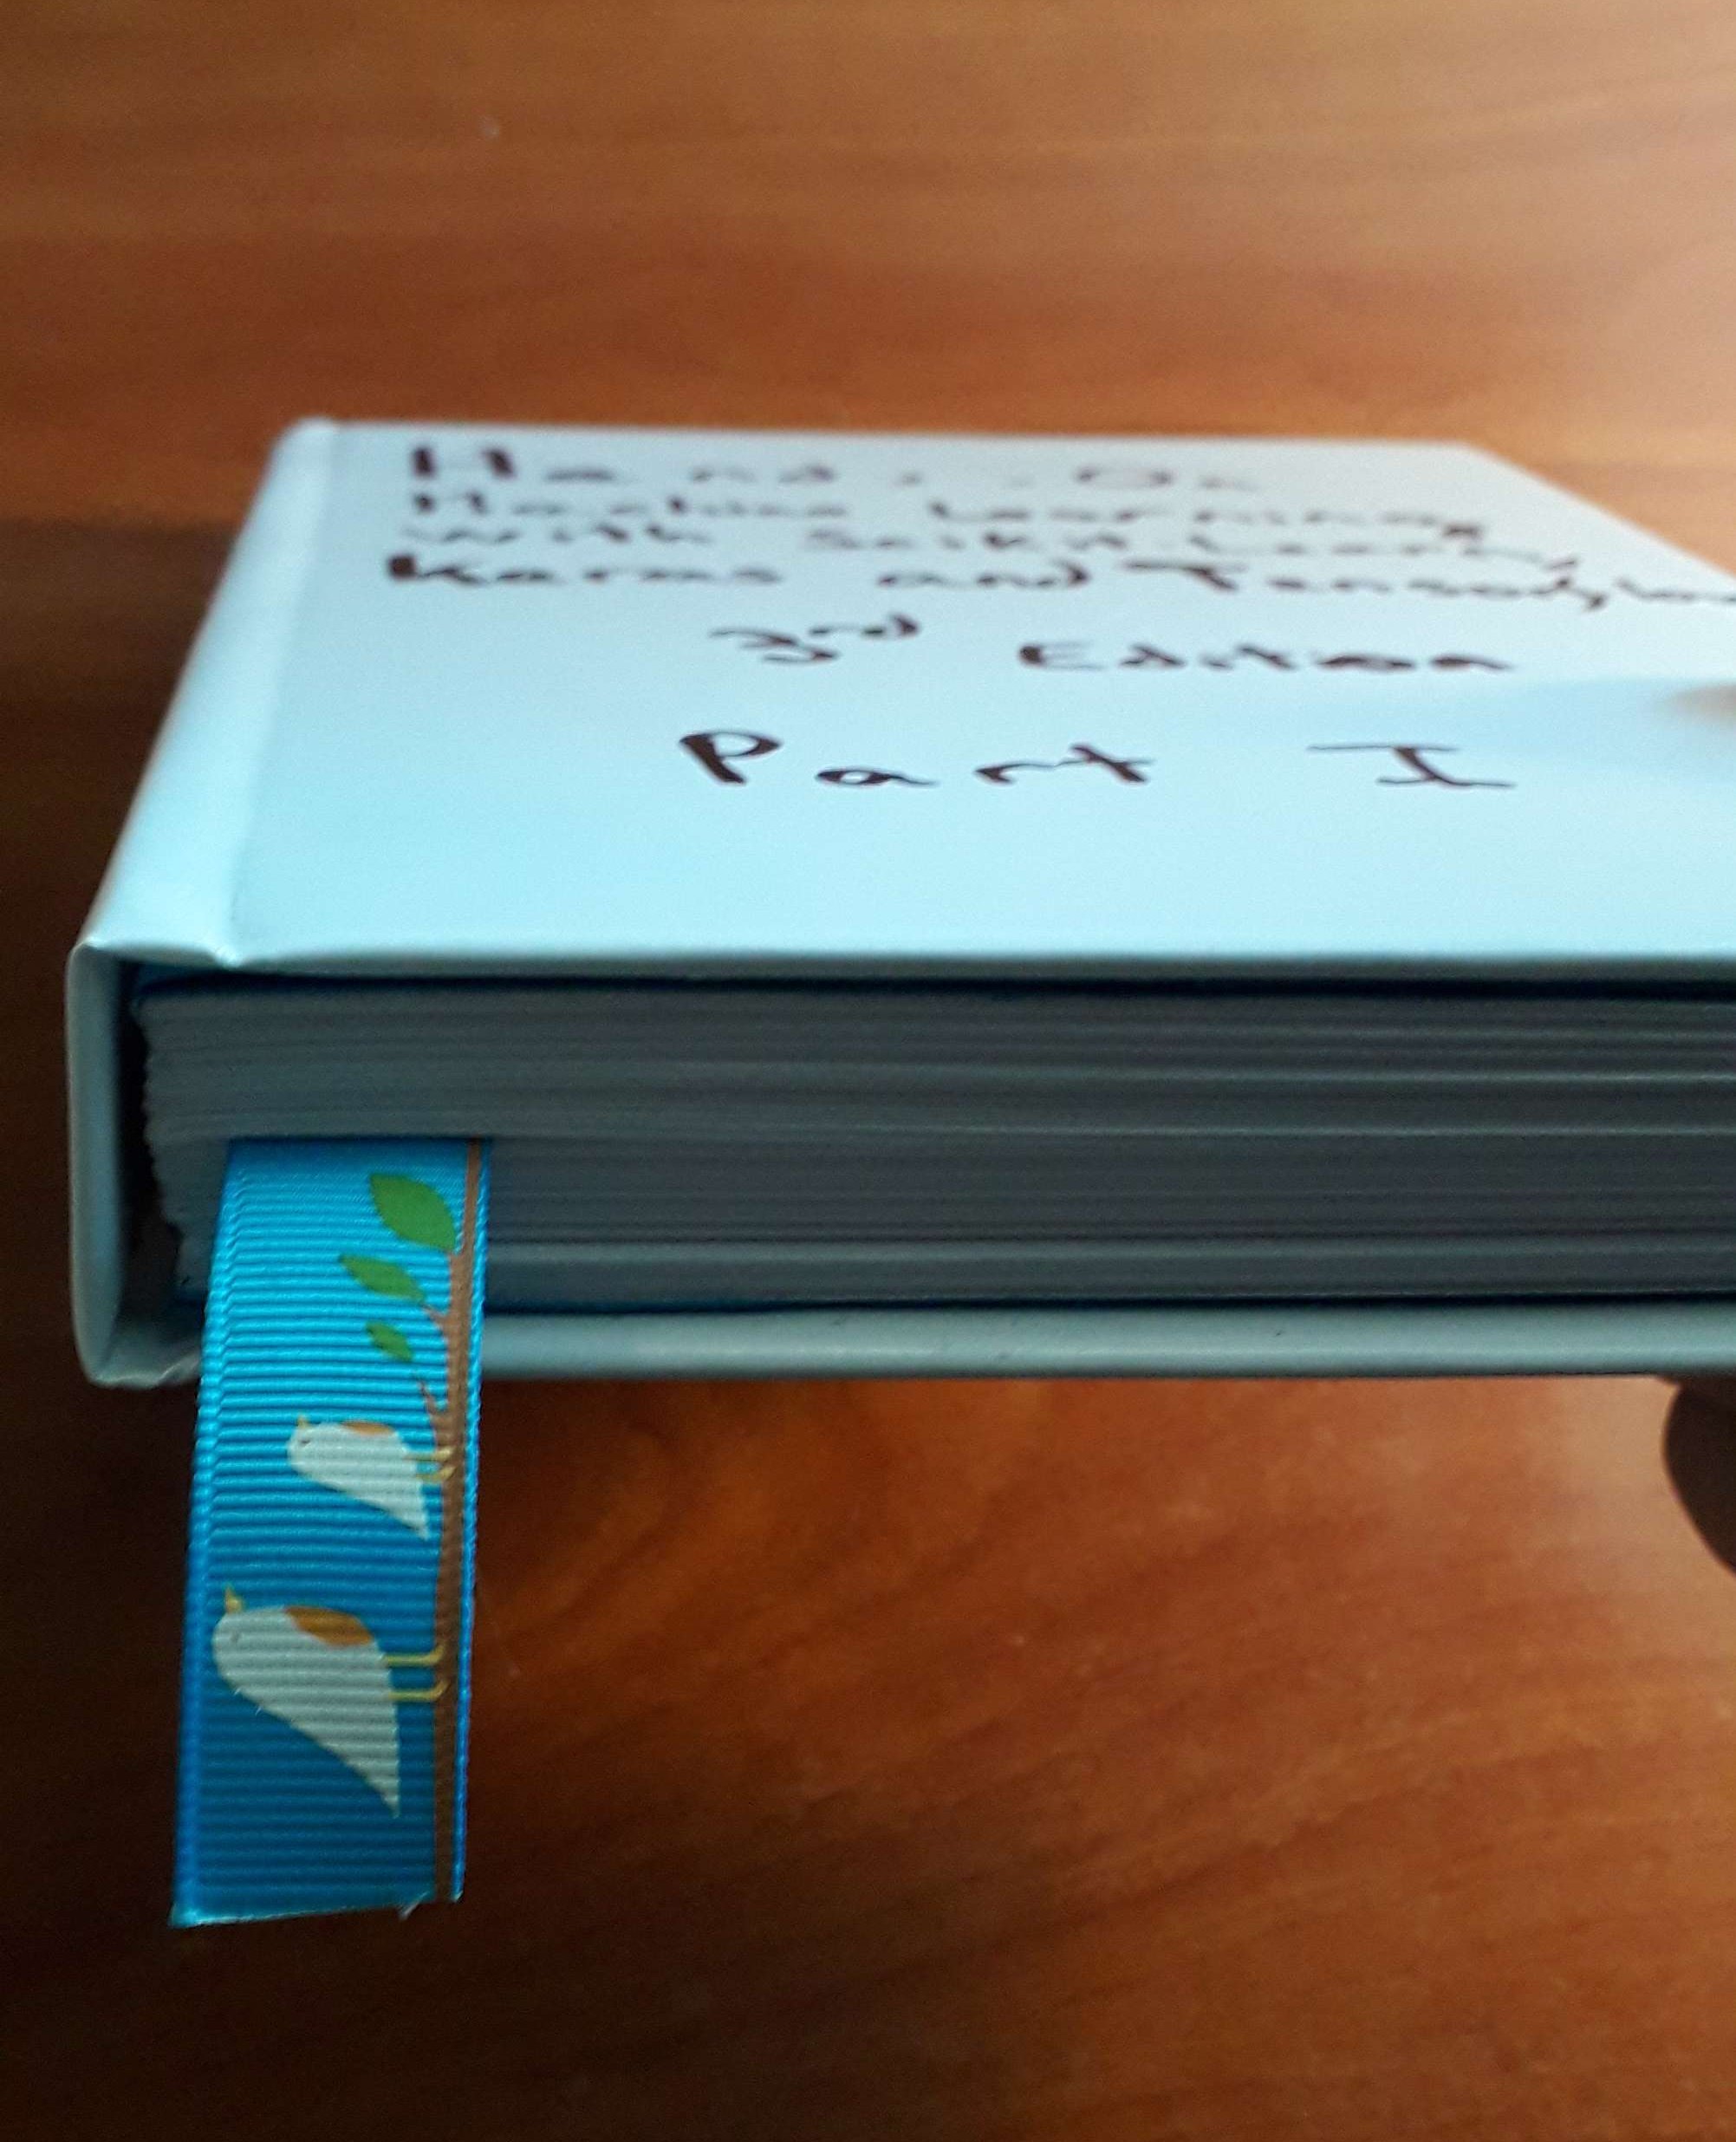 Hands-On
Machine Learning
with Scikit-Learn,
Keras and Tensorflow
3rd Edition
Part I